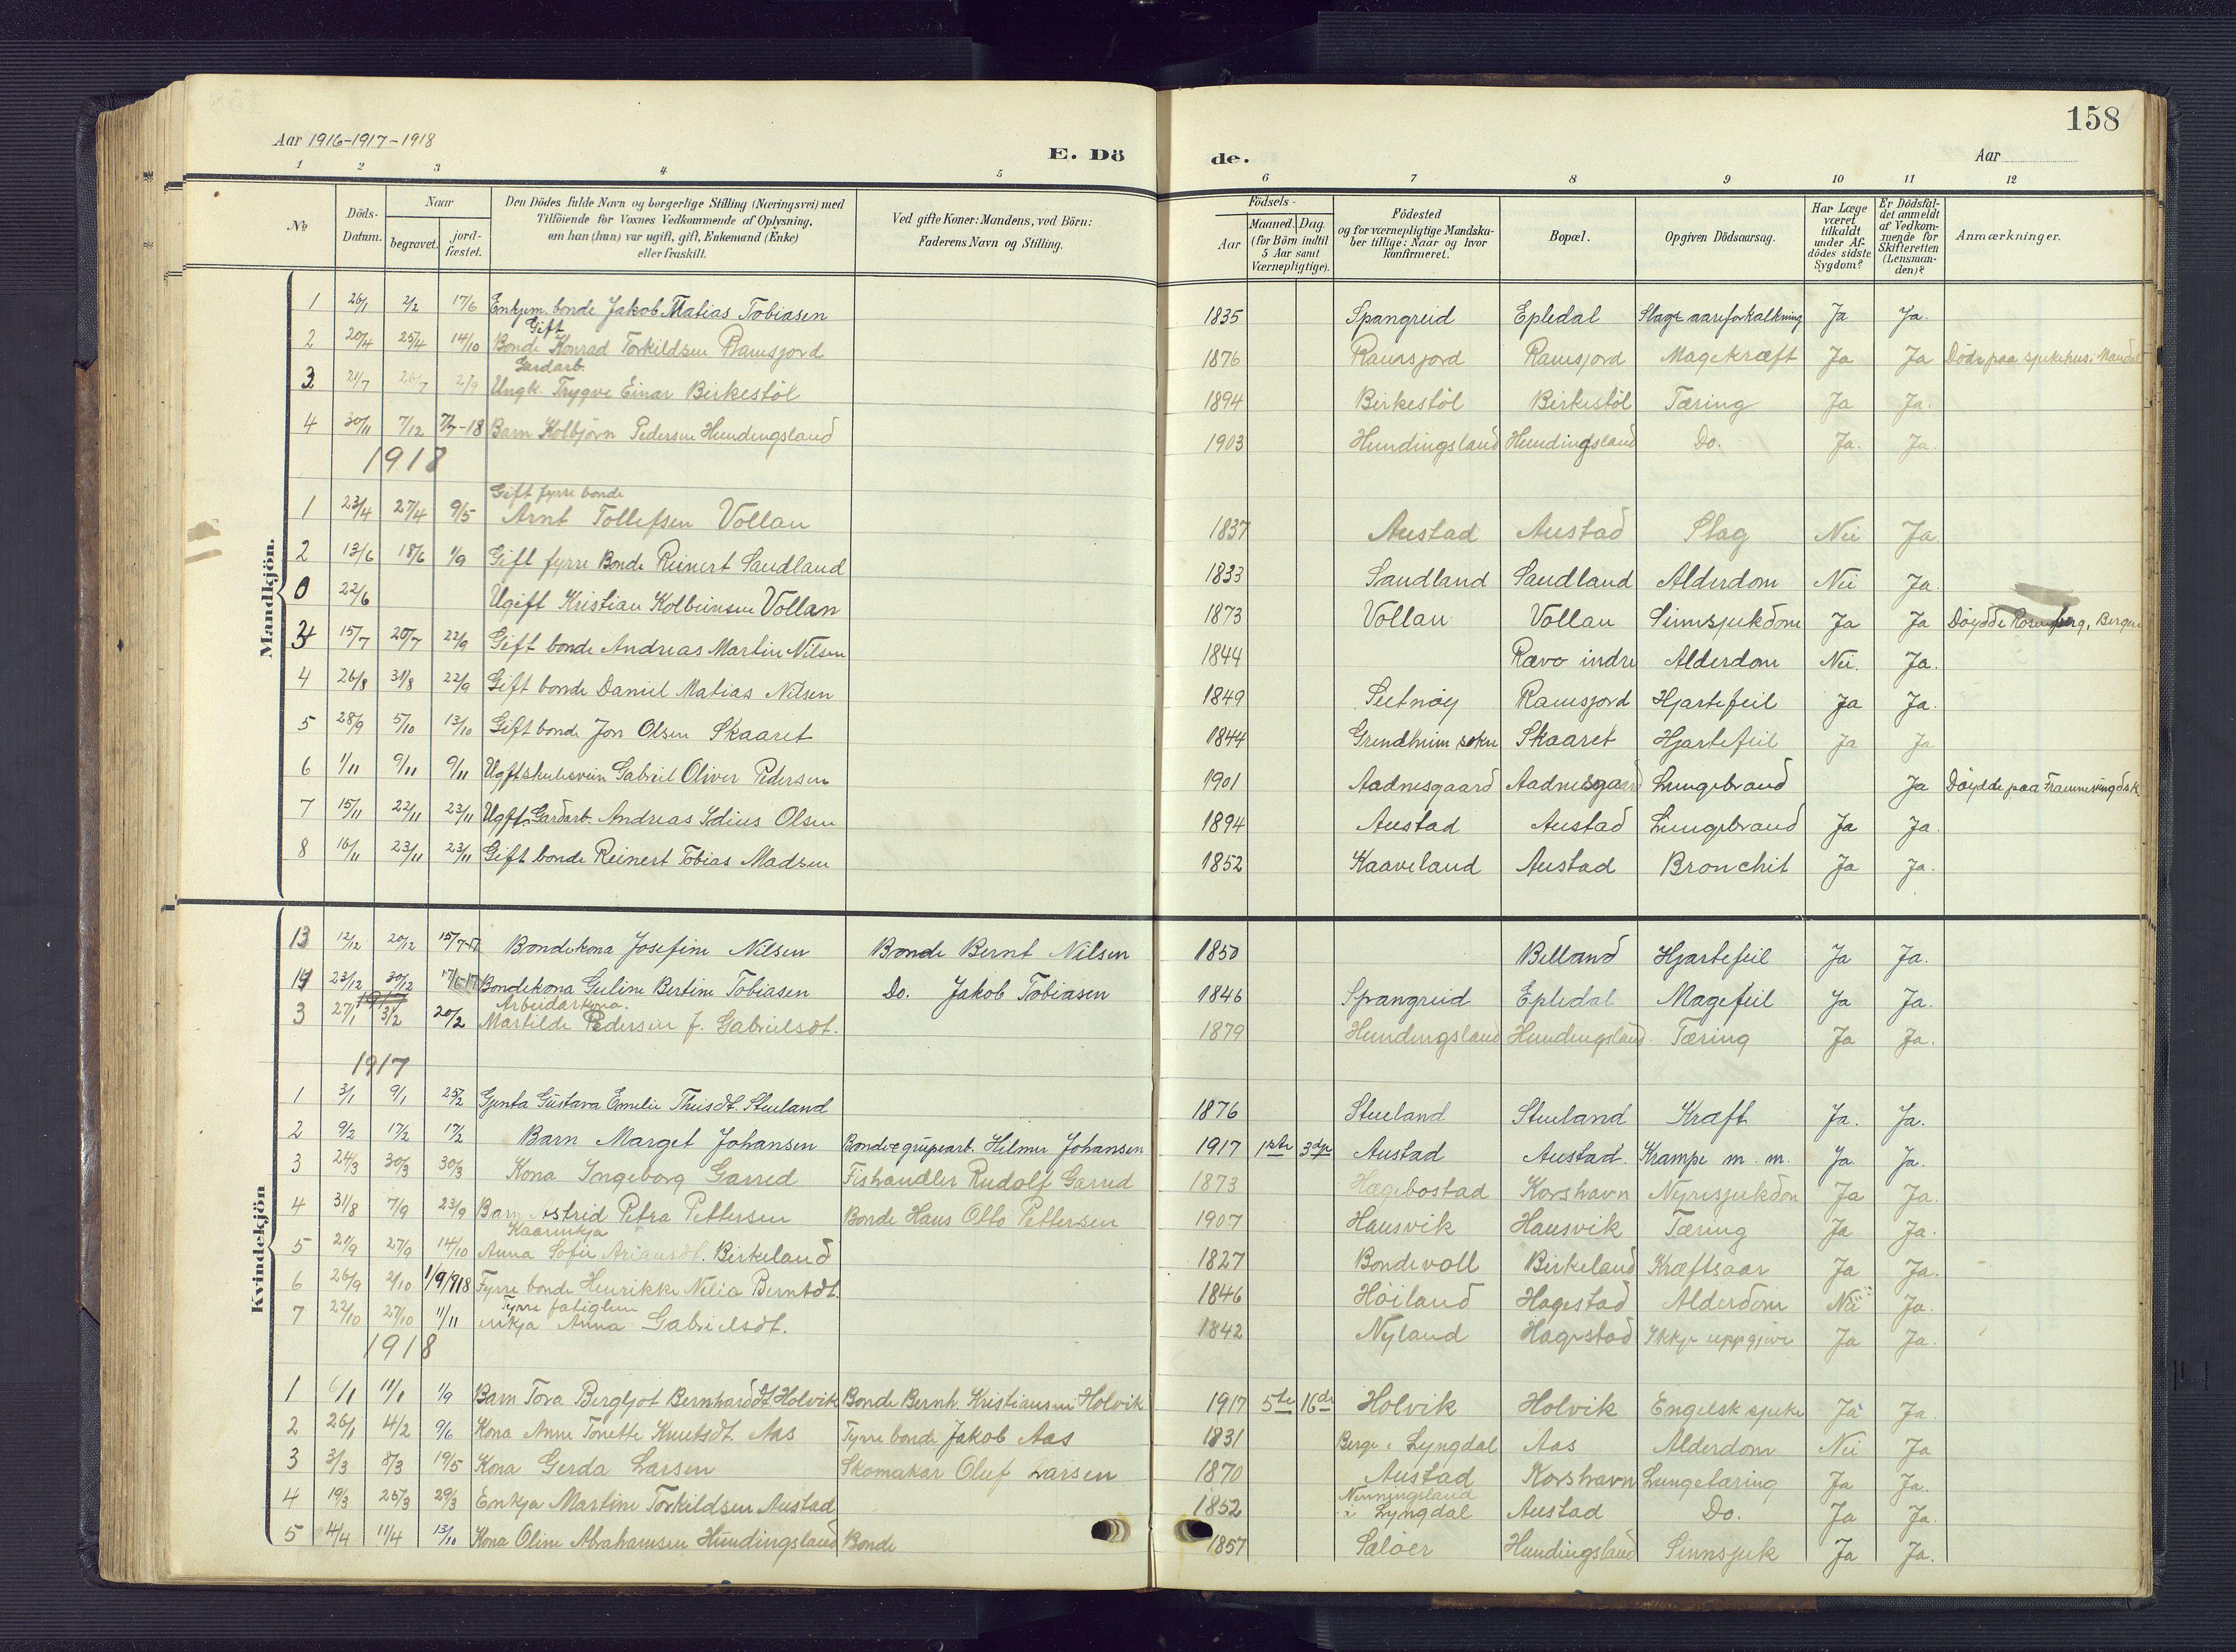 158
Aar 1916-1917-1918
E. Dö de.
Aar
1 2 3 4 5 6 7 8 9 10 11 12
№
Döds-Datum.
Naar
begravet.
jord-fæstet.
Den Dödes fulde Navn og borgerlige Stilling (Næringsvei) med
Tilföiende for Voxnes Vedkommende af Oplysning,
om han (hun) var ugift, gift, Enkemand (Enke)
eller fraskilt.
Ved gifte Koner: Mandens, ved Börn:
Faderens Navn og Stilling.
Födsels-
Aar
Maaned. Dag.
(for Börn indtil
5 Aar samt
Værnepligtige).
Födested
og for værnepligtige Mandska-
ber tillige: Naar og hvor
konfirmeret.
Bopæl.
Opgiven Dödsaarsag.
Har Læge
været
tilkaldt
under Af-
dödes sidste
Sygdom?
Er Dödsfal-
det anmeldt
af Vedkom-
mende for
Skifteretten
(Lensman-
den)?
Anmærkninger.
Mandkjön.
1 26/1 2/2 17/6 Enkjem. bonde Jakob Matias Tobiasen 1835 Spangreid Epledal Slag aareforkalkning Ja Ja.
Gift
2 20/4 25/4 14/10 Bonde Konrad Torkildsen Ramsjord 1876 Ramsjord Ramsjord Magekræft Ja Ja Döde paa sjukehus i Mandal
Gardarb.
3 21/7 26/7 2/9 Ungk. Trygve Einar Birkestöl 1894 Birkestöl Birkestöl Tæring Ja Ja.
4 30/11 7/12 7/7-18 Barn Kolbjörn Pedersen Hundingsland 1903 Hundingsland Hundingsland Do. Ja. Ja.
1918
Gift fyrre bonde
1 23/4 27/4 9/5 Arnt Tollefsen Vollan 1837 Austad Austad Slag Nei Ja.
2 13/6 18/6 1/9 Gift fyrre Bonde Reinert Sandland 1833 Sandland Sandland Alderdom Nei Ja.
0 22/6 Ugift Kristian Kolbeinsen Vollan 1873 Vollan Vollan Sinnsjukdom Ja Ja Döydde Rosenberg, Bergen
3 15/7 20/7 22/9 Gift bonde Andreas Martin Nilsen 1844 Rævo indre Alderdom Nei. Ja.
4 26/8 31/8 22/9 Gift bonde Daniel Matias Nilsen 1849 Seetnöy Ramsjord Hjartefeil Ja Ja.
5 28/9 5/10 13/10 Gift bonde Jon Olsen Skaaret 1844 Grendheim sokn Skaaret Hjartefeil Ja Ja
6 1/11 9/11 9/11 Ugift skulesvein Gabriel Oliver Pedersen 1901 Aadnesgaard Aadnesgaard Lungebrand Ja Döydde paa Framnes ungdsk.
7 15/11 22/11 23/11 Ugift Gardarb. Andreas Edius Olsen 1894 Austad Austad Lungebrand Ja Ja.
8 16/11 23/11 23/11 Gift bonde Reinert Tobias Madsen 1852 Kaaveland Austad Bronchit Ja Ja.
Kvindekjön
13 12/12 20/12 15/7-17 Bondekona Josefine Nilsen Bonde Bernt Nilsen 1850 Belland Hjartefeil Ja Ja.
14 23/12 30/12 17/6-17 Bondekona Guline Bertine Tobiasen Do. Jakob Tobiasen 1846 Spangreid Epledal Magefeil Ja Ja.
1917 Arbeidarkona.
3 27/1 3/2 20/2 Martilde Pedersen f. Gabrielsdt. 1879 Hundingsland Hundingsland. Tæring Ja Ja.
1917
1 3/1 9/1 25/2 Gjenta Gustava Emelie Theisdt. Stueland 1876 Stueland Stueland Kræft Ja. Ja.
2 9/2 17/2 17/2 Barn Marget Johansen Bonde & grupearb. Hilmer Johansen 1917 1ste 3dje Austad Austad. Krampe m. m. Ja. Ja.
3 24/3 30/3 30/3 Kona Ingeborg Garred Fishandler Rudolf Garred 1873 Hægebostad Korshavn Nyresjukdom Ja Ja.
4 31/8 7/9 23/9 Barn Astrid Petra Pettersen Bonde Hans Otto Pettersen 1907 Hausvik Hausvik Tæring Ja Ja.
Kaarenkja
5 21/9 27/9 14/10 Anna Sofie Ariansdt. Birkeland 1827 Bondevoll Birkeland Kræftsaar Ja Ja.
6 26/9 2/10 1/9/1918 Fyrre bonde Henrikke Nilia Berntdt. 1846 Höiland Hagestad Alderdom Nei Ja.
Fyrre fatiglem
7 22/10 27/10 1/11 enkja Anna Gabrielsdt. 1842 Nyland Hagestad Ikkje uppgjeve Ja Ja.
1918
1 6/1 11/1 1/9 Barn Tora Bergljot Bernharddt. Holvik Bonde Bernh. Kristiansen Holvik 1917 5te 16de Holvik Holvik Engelsk sjuke Ja Ja
2 26/1 4/2 9/6 Kona Anne Tonette Knutsdt. Aas Fyrre bonde Jakob Aas 1831 Berge i Lyngdal Aas Alderdom Nei Ja
3 3/3 8/3 19/5 Kona Gerda Larsen Skomakar Oluf Larsen 1870 Austad Korshavn Lungetæring Ja Ja.
4 19/3 25/3 29/3 Enkja Martine Torkildsen Austad 1852 Nenningsland i Lyngdal Austad Do. Ja Ja.
5 4/4 11/4 13/10 Kona Oline Abrahamsen Hundingsland Bonde 1857 Salöer Hundingsland Sinnsjuk Ja Ja.